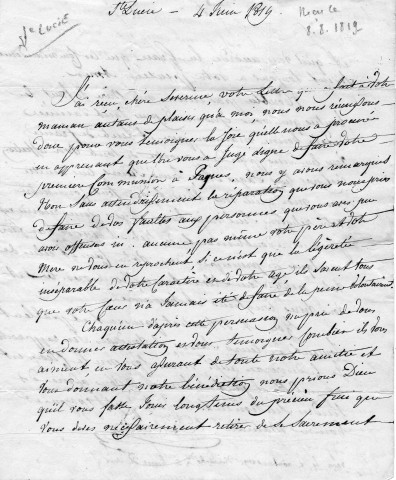 Ste Lucie — 4 Juin 1819.
Ste Lucie
8. 8. 1819
J'ai reçu, chère Severine, votre Lettre qui a fait à votre
maman autant de plaisir qu'à moi nous nous réunissons
donc pour vous temoigner la Joie qu'elle nous a procuré
en apprenant que l'on vous a Jugé digne de faire votre
premiere Communion à Pâques, nous y avons remarqué
Non Sans attendrissement la réparation que vous nous priez
de faire de vos fautes aux personnes que vous avez pu
avoir offensées ici: aucune pas même votre père et votre
Mere ne vous en reprochent si ce n'est que la légéreté
inséparable de votre Caractère et de votre age ils savent tous
que votre Cœur n'a Jamais été de faire de la peine volontairement
Chaqu'un d'après cette persuasion me prie de vous
en donner attestation et vous temoigner Combien ils vous
aiment en vous assurant de toute notre amitié et
Vous donnant notre bénédiction nous prions Dieu
qu'il vous fasse Jouir longtems du précieux fruit que
vous devez nécéssairement retirer de ce Sacrement